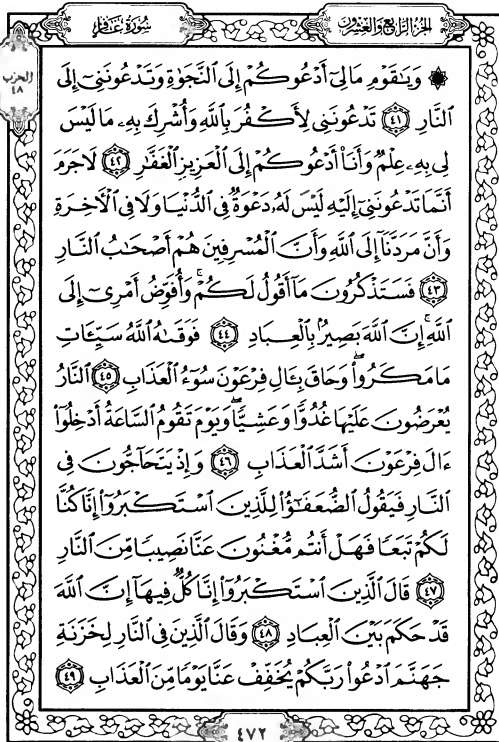 سُورَةُ غَافِرٍ
الجُزْءُ الرَّابِعُ وَالعِشْرُونَ
الحزب
٤٨
۞ وَيَٰقَوْمِ مَالِىٓ أَدْعُوكُمْ إِلَى ٱلنَّجَوٰةِ وَتَدْعُونَنِىٓ إِلَى
ٱلنَّارِ ٤١ تَدْعُونَنِى لِأَكْفُرَ بِٱللَّهِ وَأُشْرِكَ بِهِۦ مَا لَيْسَ
لِى بِهِۦ عِلْمٌ وَأَنَا۠ أَدْعُوكُمْ إِلَى ٱلْعَزِيزِ ٱلْغَفَّٰرِ ٤٢ لَا جَرَمَ
أَنَّمَا تَدْعُونَنِىٓ إِلَيْهِ لَيْسَ لَهُۥ دَعْوَةٌ فِى ٱلدُّنْيَا وَلَا فِى ٱلْءَاخِرَةِ
وَأَنَّ مَرَدَّنَآ إِلَى ٱللَّهِ وَأَنَّ ٱلْمُسْرِفِينَ هُمْ أَصْحَٰبُ ٱلنَّارِ
٤٣ فَسَتَذْكُرُونَ مَآ أَقُولُ لَكُمْ ۚ وَأُفَوِّضُ أَمْرِىٓ إِلَى
ٱللَّهِ ۚ إِنَّ ٱللَّهَ بَصِيرٌۢ بِٱلْعِبَادِ ٤٤ فَوَقَىٰهُ ٱللَّهُ سَيِّـَٔاتِ
مَا مَكَرُوا۟ ۖ وَحَاقَ بِـَٔالِ فِرْعَوْنَ سُوٓءُ ٱلْعَذَابِ ٤٥ ٱلنَّارُ
يُعْرَضُونَ عَلَيْهَا غُدُوًّا وَعَشِيًّا ۖ وَيَوْمَ تَقُومُ ٱلسَّاعَةُ أَدْخِلُوٓا۟
ءَالَ فِرْعَوْنَ أَشَدَّ ٱلْعَذَابِ ٤٦ وَإِذْ يَتَحَآجُّونَ فِى
ٱلنَّارِ فَيَقُولُ ٱلضُّعَفَٰٓؤُا۟ لِلَّذِينَ ٱسْتَكْبَرُوٓا۟ إِنَّا كُنَّا
لَكُمْ تَبَعًا فَهَلْ أَنتُم مُّغْنُونَ عَنَّا نَصِيبًا مِّنَ ٱلنَّارِ
٤٧ قَالَ ٱلَّذِينَ ٱسْتَكْبَرُوٓا۟ إِنَّا كُلٌّ فِيهَآ إِنَّ ٱللَّهَ
قَدْ حَكَمَ بَيْنَ ٱلْعِبَادِ ٤٨ وَقَالَ ٱلَّذِينَ فِى ٱلنَّارِ لِخَزَنَةِ
جَهَنَّمَ ٱدْعُوا۟ رَبَّكُمْ يُخَفِّفْ عَنَّا يَوْمًا مِّنَ ٱلْعَذَابِ ٤٩
٤٧٢